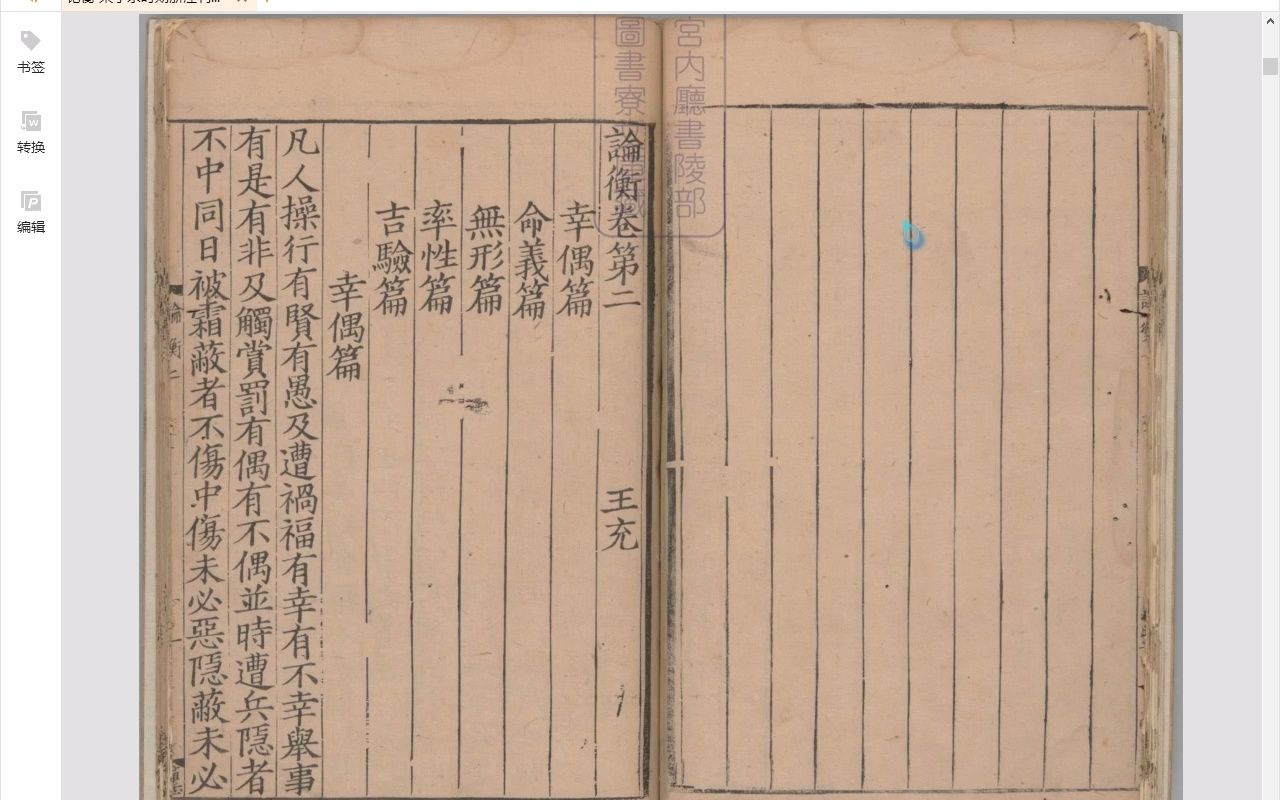 书签
转换
编辑
宮内廳書陵部
圖書寮
論衡卷第二
王充
幸偶篇
命義篇
無形篇
率性篇
吉驗篇
幸偶篇
凡人操行有賢有愚及遭禍福有幸有不幸舉事
有是有非及觸賞罰有偶有不偶並時遭兵隱者
不中同日被霜蔽者不傷中傷未必惡隱蔽未必
論衡二